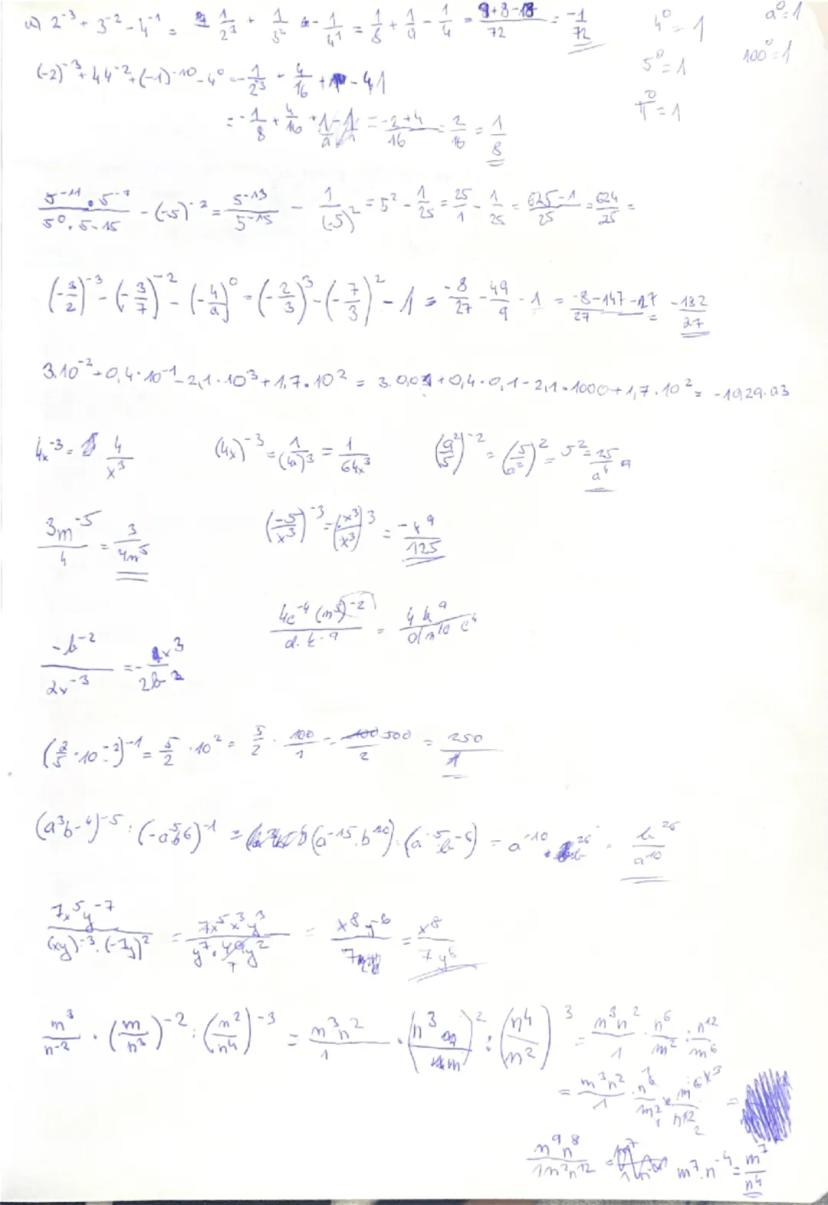 a) 2⁻³ + 3⁻² - 4⁻¹ = 1/2³ + 1/3² - 1/4¹ = 1/8 + 1/9 - 1/4 = 9+8-18/72 = -1/72
4⁰ = 1 a⁰ = 1
5⁰ = 1 100⁰ = 1
π⁰ = 1
(-2)⁻³ + 4·4⁻² + (-1)⁻¹⁰ - 4⁰ = -1/2³ + 4/16 + 1 - 1
= -1/8 + 4/16 + 1 - 1 = -2+4/16 = 2/16 = 1/8
5⁻¹¹ · 5⁻²/5⁰ · 5-15 - (-5)⁻² = 5⁻¹³/5⁻¹⁵ - 1/(-5)² = 5² - 1/25 = 25/1 - 1/25 = 625-1/25 = 624/25 =
(-3/2)⁻³ - (-3/7)⁻² - (-4/9)⁰ = (-2/3)³ - (-7/3)² - 1 = -8/27 - 49/9 - 1 = -8-147-27/27 = -182/27
3·10⁻² + 0,4·10⁻¹ - 2,1·10³ + 1,7·10² = 3·0,01 + 0,4·0,1 - 2,1·1000 + 1,7·10² = -1929.93
4x⁻³ = 4/x³ (4x)⁻³ = 1/(4x)³ = 1/64x³ (a²/5)⁻² = (5/a²)² = 5² = 25/a⁴
3m⁻⁵/4 = 3/4m⁵ (-5/x³)⁻³ = (x³/x³)³ = -x⁹/125
4c⁻⁴(n⁵)⁻²/d·k⁻⁹ = 4k⁹/d n¹⁰ c⁴
-b⁻²/2x⁻³ = -x³/2b²
(2/5 · 10⁻²)⁻¹ = 5/2 · 10² = 5/2 · 100/1 = 500/2 = 250/1
(a³b-⁴)⁻⁵ : (-a⁵b⁶)⁻¹ = (a⁻¹⁵·b²⁰) : (a⁻⁵b⁻⁶) = a⁻¹⁰ · b²⁶ = b²⁶/a¹⁰
7x⁵y⁻⁷/(xy)⁻³·(-7y)² = 7x⁵x³y³/y⁷·49y² = x⁸y⁻⁶/7 = x⁸/7y⁶
m³/n⁻² · (m/n³)⁻² : (n²/n⁴)⁻³ = m³n²/1 · (n³/m)² : (n⁴/n²)³ = m³n²/1 · n⁶/m² : n¹²/m⁶
= m³n²/1 · n⁶/m² · m⁶/n¹² =
m⁹n⁸/1m²n¹² = m⁷·n⁻⁴ = m⁷/n⁴